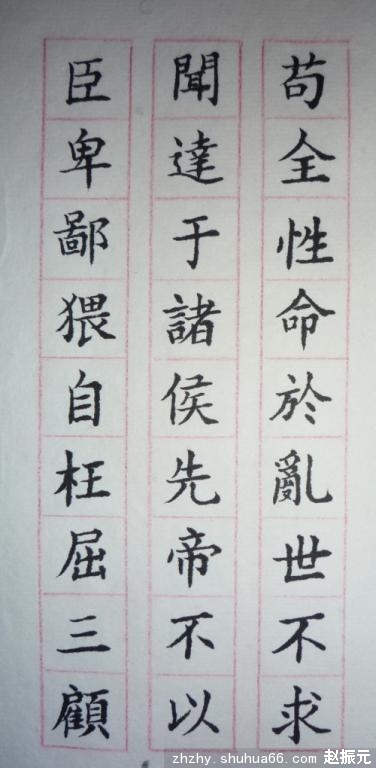 苟全性命於亂世不求
聞達于諸侯先帝不以
臣卑鄙猥自枉屈三顧
zhzhy.shuhua66.com 赵振元